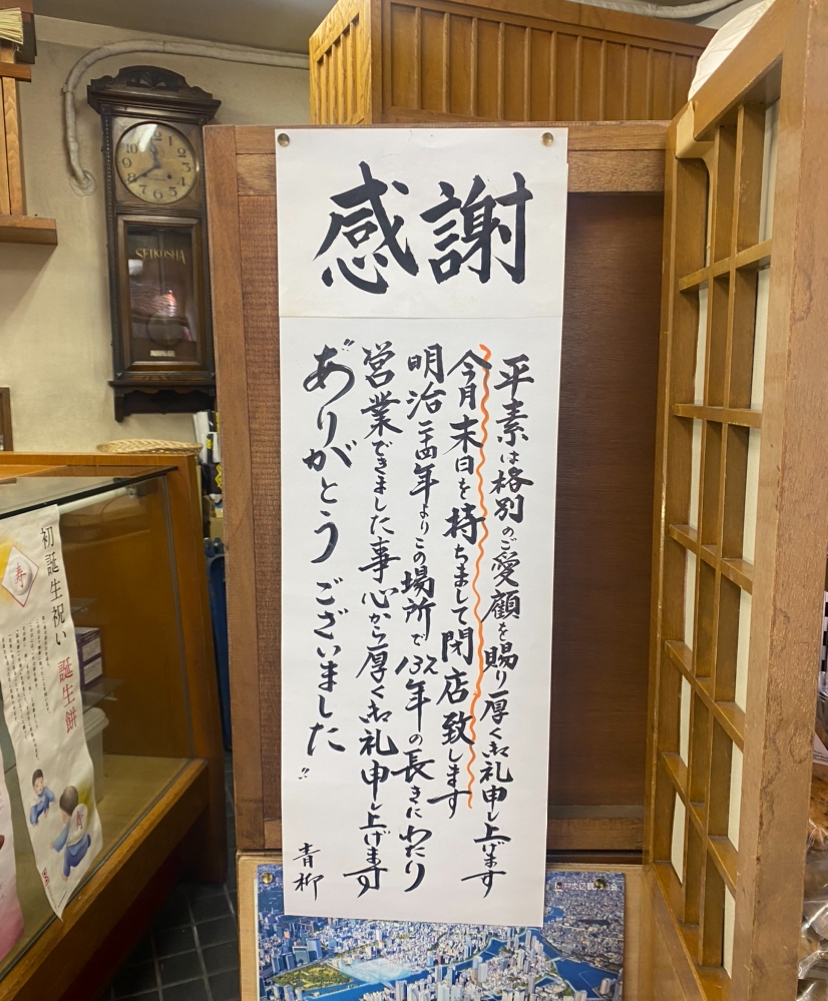 感謝
平素は格別のご愛顧を賜り厚く御礼申し上げます
今月末日を持ちまして閉店致します
明治二十四年よりこの場所で132年の長きにわたり
営業できました事心から厚く御礼申し上げます
ありがとうございました!!
青柳
SEIKOSHA
初誕生祝い
誕生餅
寿